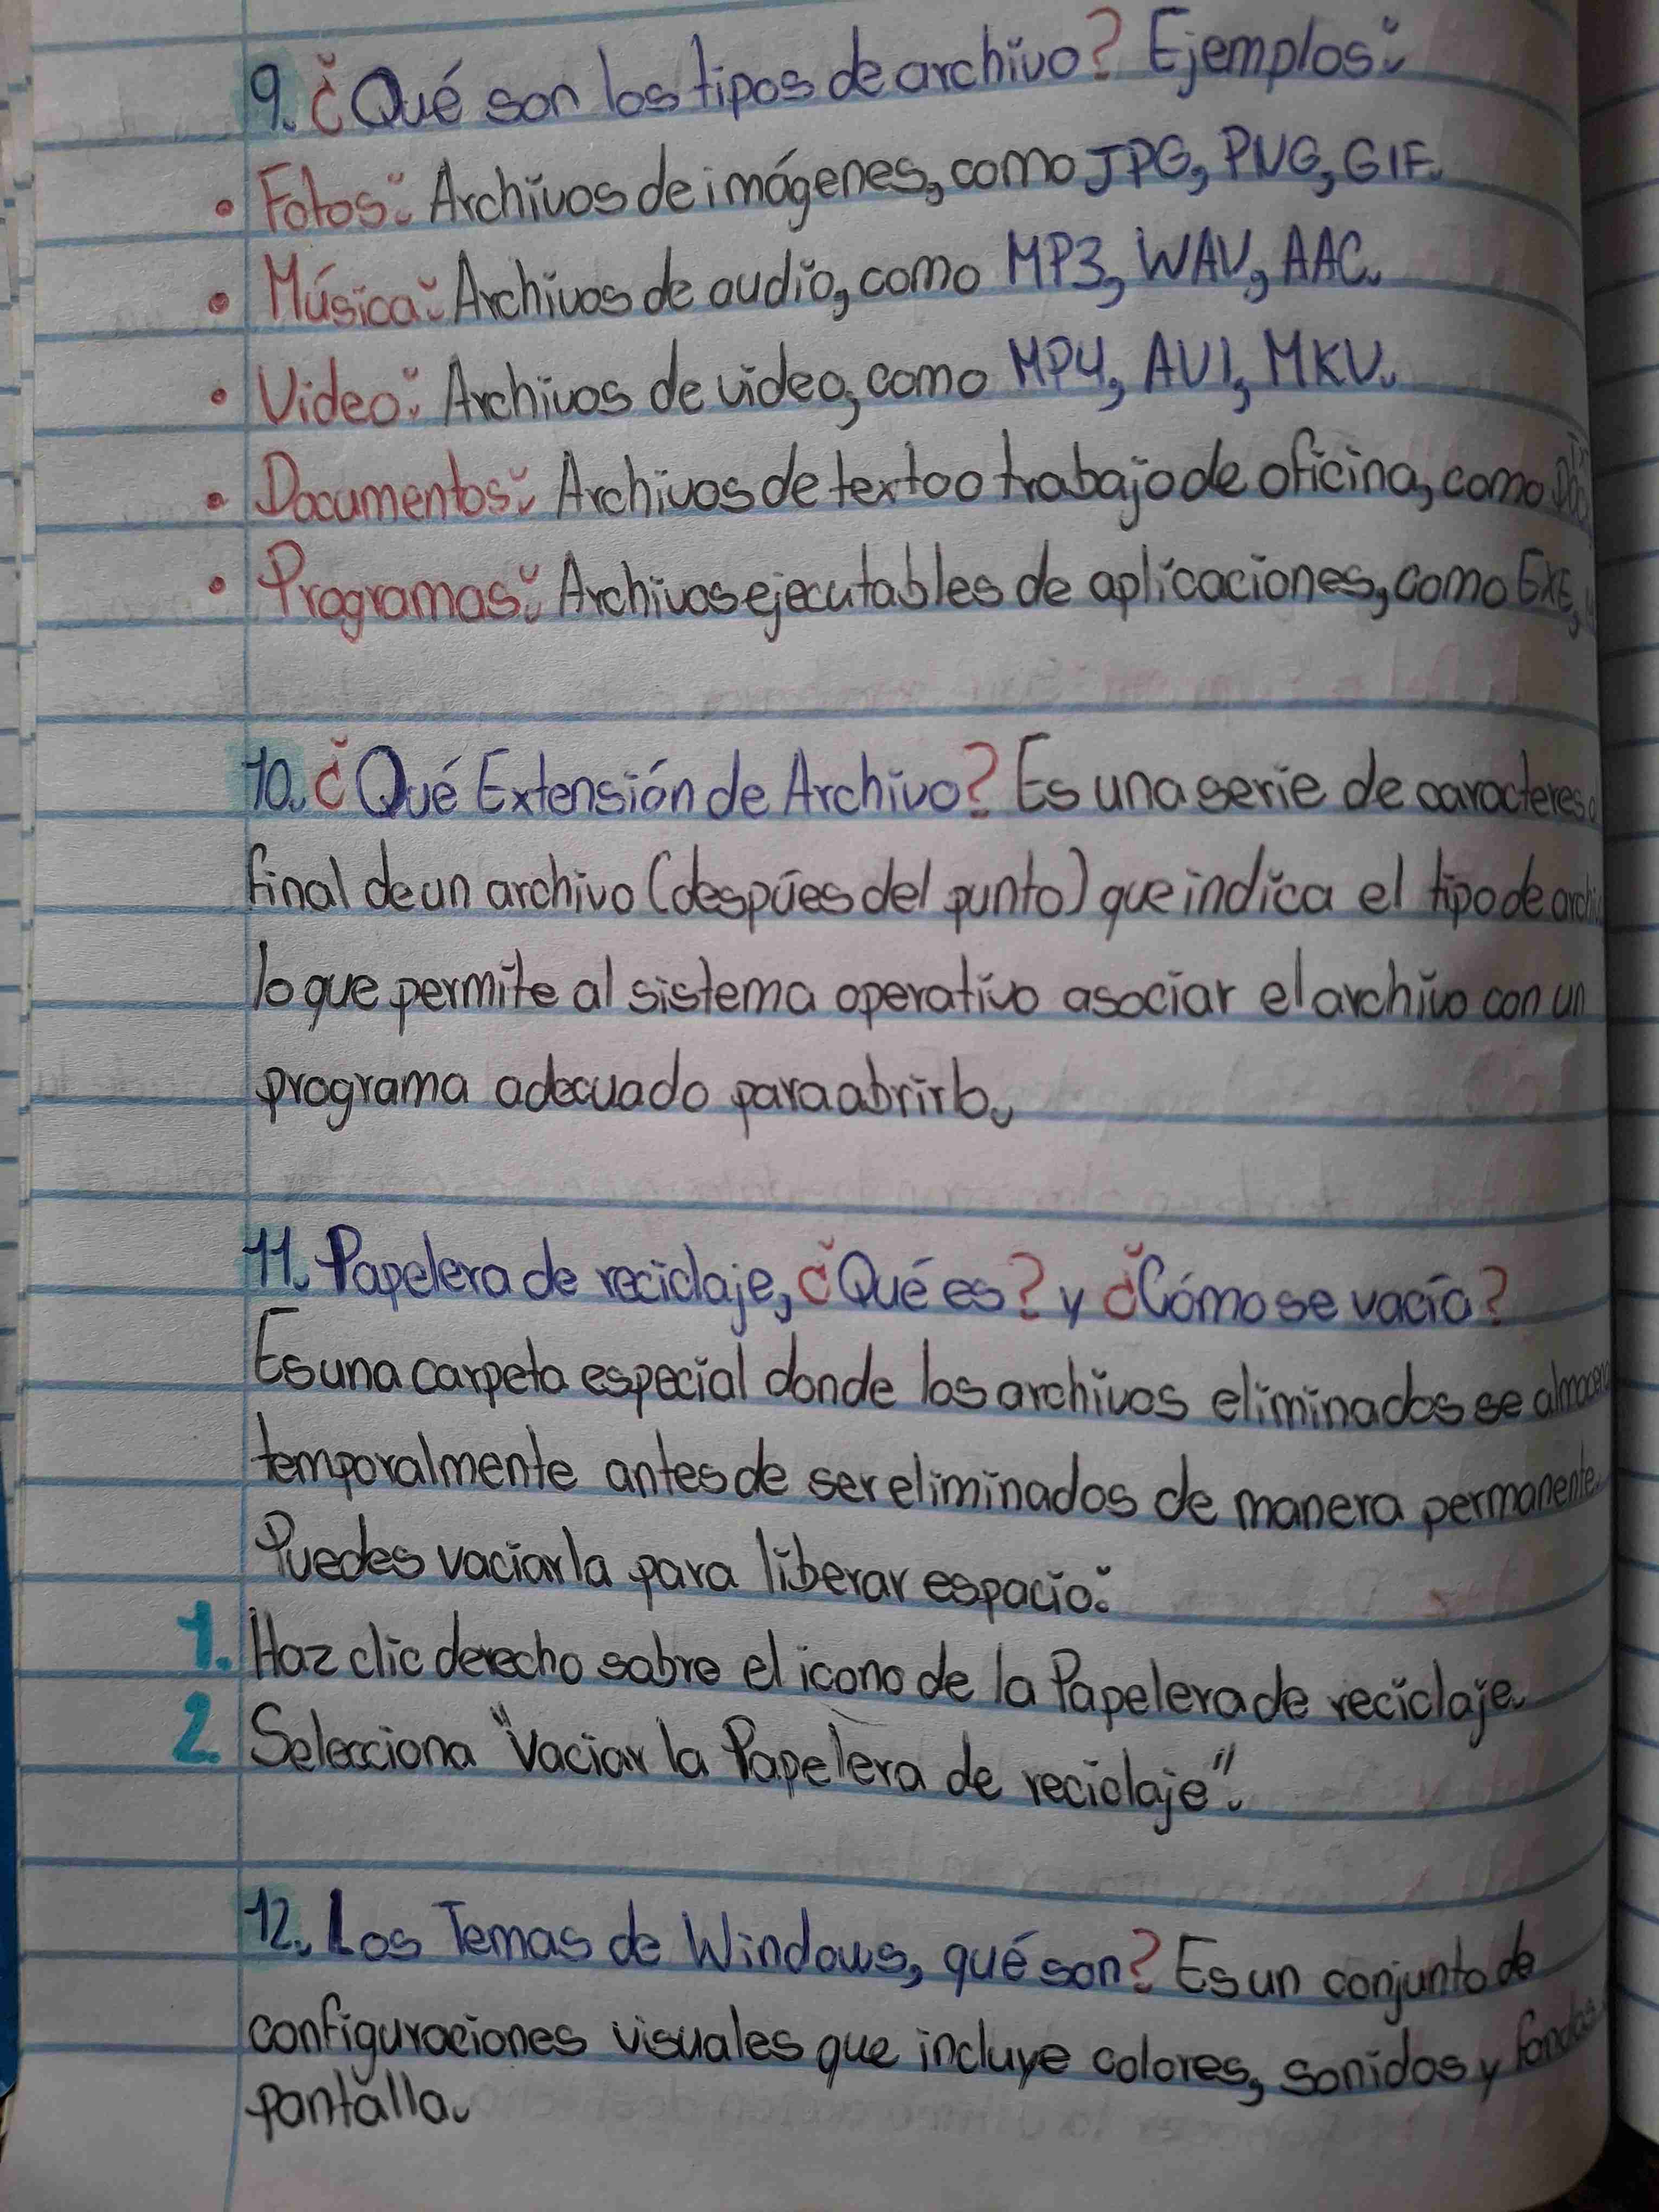 9. ¿Qué son los tipos de archivo? Ejemplos:
• Fotos: Archivos de imágenes, como JPG, PNG, GIF.
• Música: Archivos de audio, como MP3, WAV, AAC.
• Video: Archivos de video, como MP4, AVI, MKV.
• Documentos: Archivos de texto o trabajo de oficina, como
• Programas: Archivos ejecutables de aplicaciones, como EXE,
10. ¿Qué Extensión de Archivo? Es una serie de caracteres
final de un archivo (despúes del punto) que indica el tipo de
lo que permite al sistema operativo asociar el archivo con un
programa adecuado para abrirlo.
11. Papelera de reciclaje, ¿Qué es? y ¿Cómo se vacía?
Es una carpeta especial donde los archivos eliminados se
temporalmente antes de ser eliminados de manera permanente.
Puedes vaciarla para liberar espacio:
1. Haz clic derecho sobre el icono de la Papelera de reciclaje.
2. Selecciona "Vaciar la Papelera de reciclaje".
12. Los Temas de Windows, qué son? Es un conjunto de
configuraciones visuales que incluye colores, sonidos y fondos
pantalla.